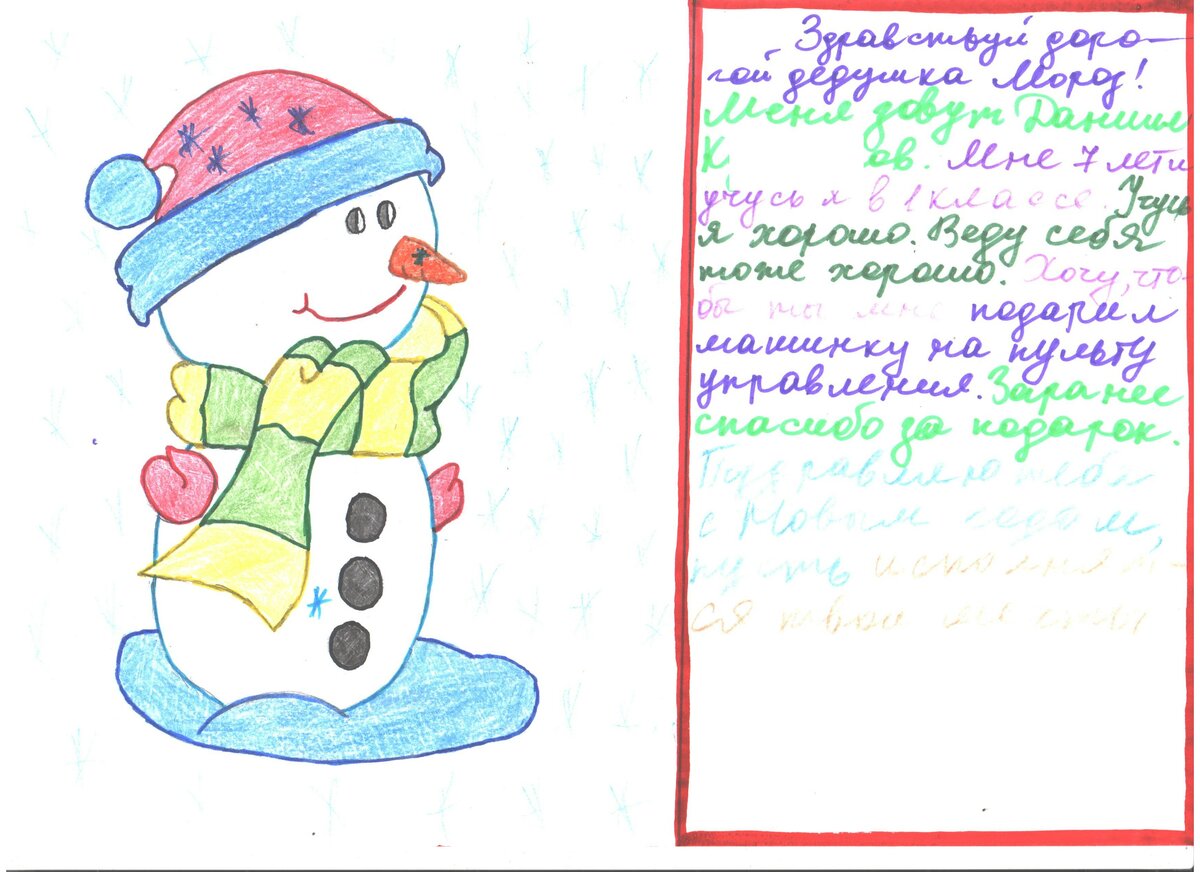 Здравствуй доро-
гой дедушка Мороз!
Меня зовут Даниил
К ов. Мне 7 лет
учусь я в 1 классе. Учусь
я хорошо. Веду себя
тоже хорошо. Хочу, что-
бы ты мне подарил
машинку на пульту
управления. Заранее
спасибо за подарок.
Поздравляю тебя
с Новым годом,
пусть исполня
ся твои мечты